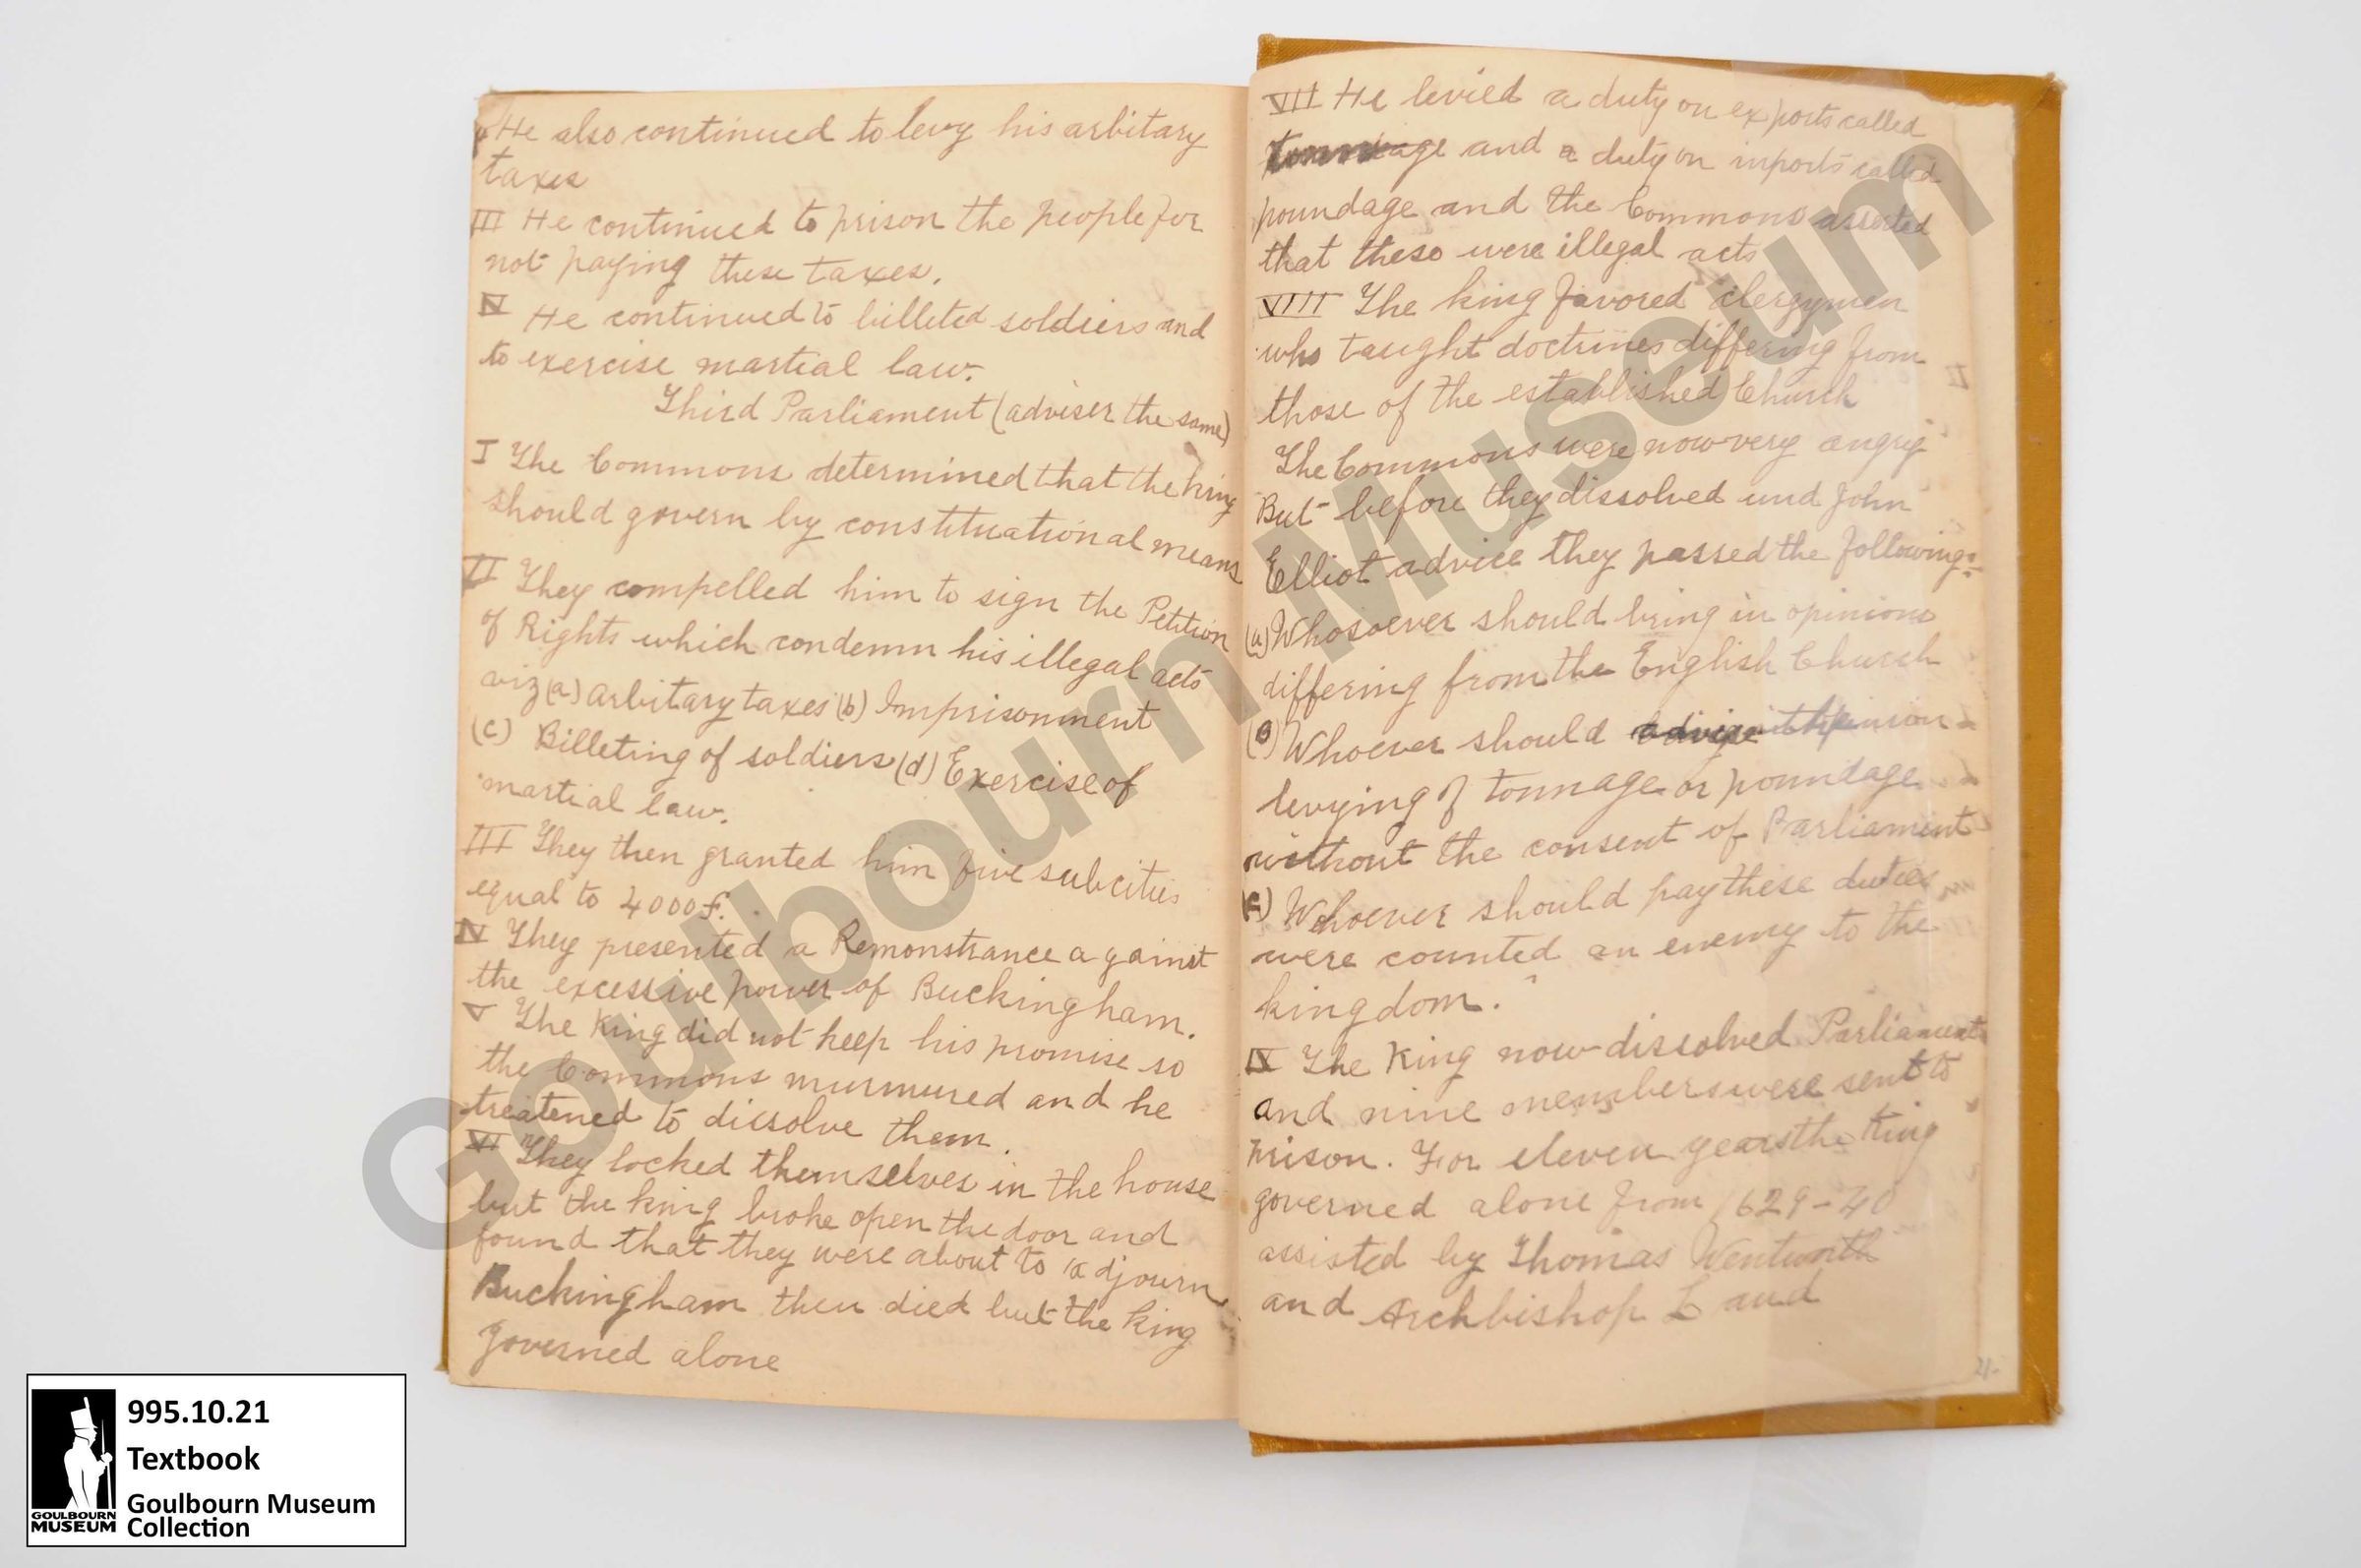 He also continued to levy his arbitary
taxes
III He continued to prison the people for
not paying these taxes.
IV He continued to billeted soldiers and
to exercise martial law.
Third Parliament (adviser the same)
I The Commons determined that the king
should govern by constituational means
II They compelled him to sign the Petition
of Rights which condemn his illegal acts
viz (a) arbitary taxes (b) Imprisonment
(c) Billeting of soldiers (d) Exercise of
martial law.
III They then granted him five subcities
equal to 4000£.
IV They presented a Remonstrance against
the excessive power of Buckingham.
V The King did not keep his promise so
the Commons murmured and he
treatened to dissolve them.
VI They locked themselves in the house
but the king broke open the door and
found that they were about to adjourn
Buckingham then died but the king
governed alone
VII He levied a duty on exports called
tonnage and a duty on inports called
poundage and the Commons asserted
that these were illegal acts
VIII The king favored clergymen
who taught doctrines differing from
those of the established Church
The Commons were now very angry
But before they dissolved und John
Elliot advice they passed the following:-
(a) Whosoever should bring in opinions
differing from the English Church
(B) Whoever should
levying of tonnage or poundage
without the consent of Parliament
(c) Whoever should pay these duties
were counted an enemy to the
kingdom.
IX The King now dissolved Parliament
and nine members were sent to
prison. For eleven years the King
governed alone from 1629-40
assisted by Thomas Wentworth
and Archbishop Laud
21-
Goulbourn Museum
GOULBOURN
MUSEUM
995.10.21
Textbook
Goulbourn Museum
Collection